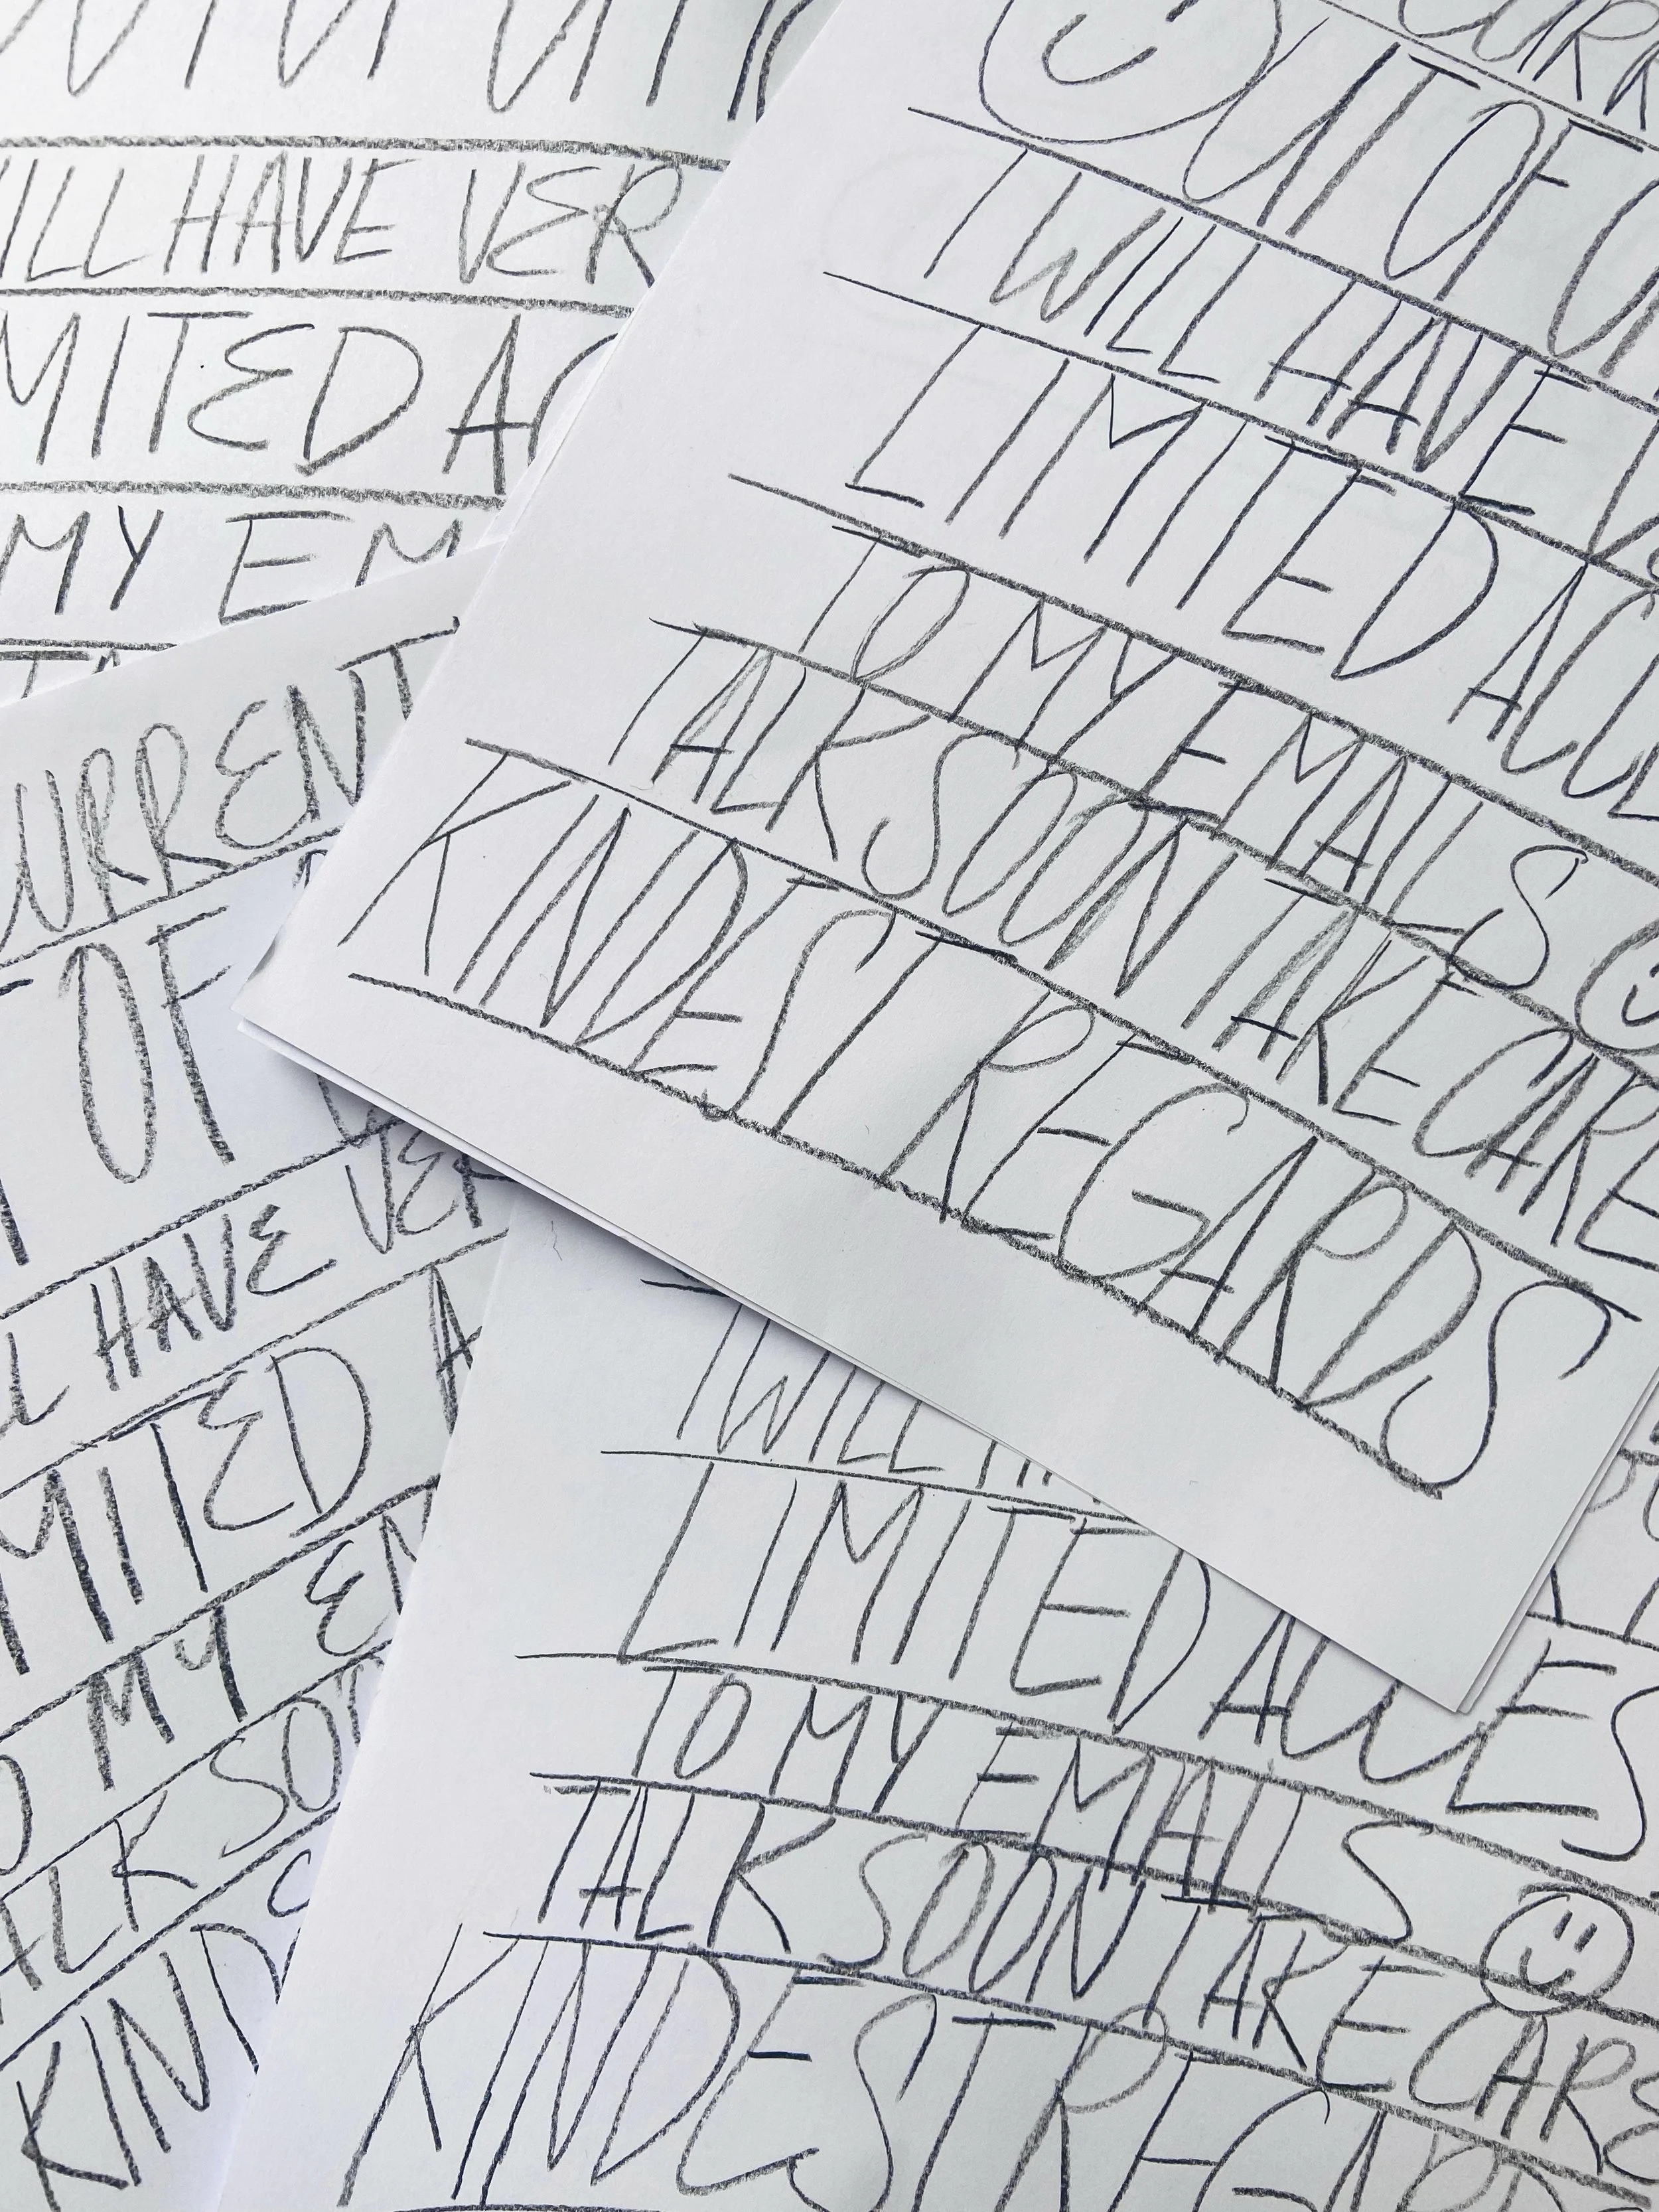 ILL HAVE VER
MITED AC
MY EM
CURRENT
OF
L HAVE VER
MITED A
MY EM
ALK SO
KIND
CURR
OUT OF
I WILL HAVE
LIMITED ACCE
TO MY EMAILS ☺
TALK SOON TAKE CARE
KINDEST REGARDS
I WILL
LIMITED ACCES
TO MY EMAILS ☺
TALK SOON TAKE CARE
KINDEST REGARD